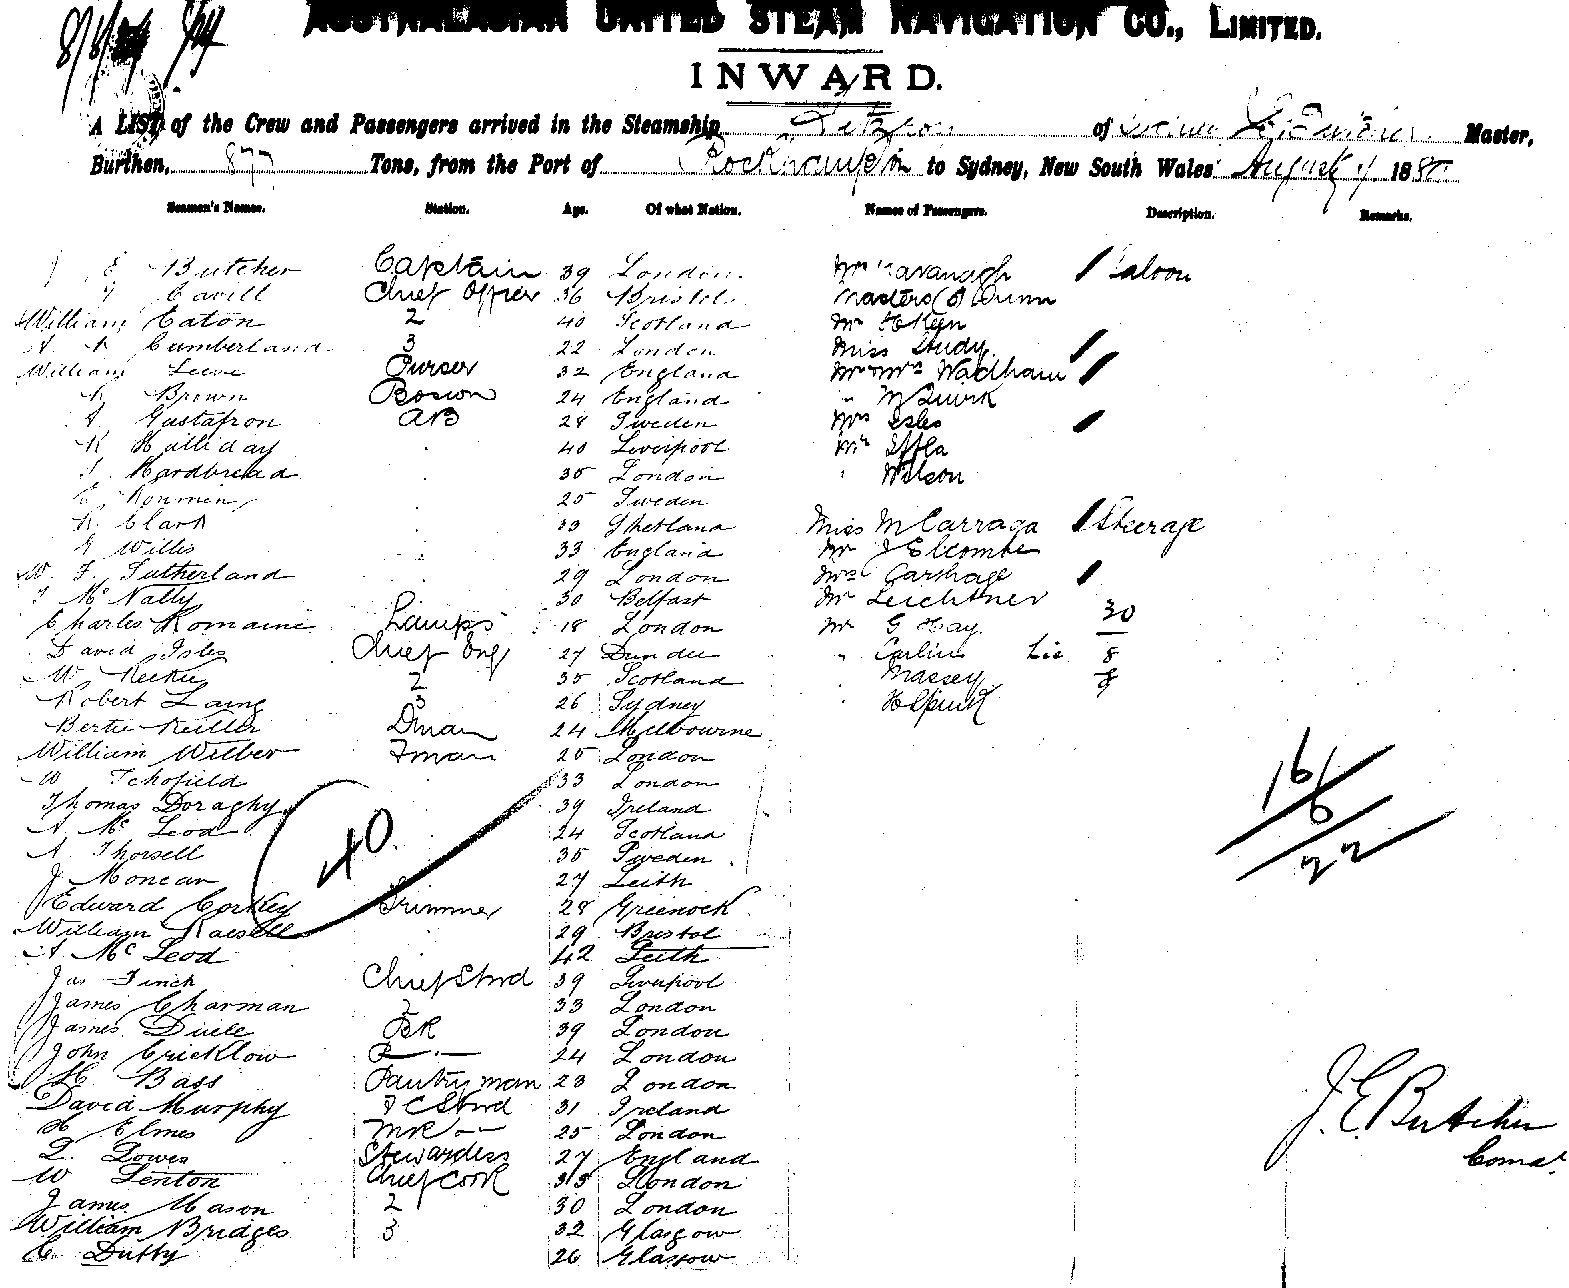 AUSTRALASIAN UNITED STEAM NAVIGATION CO., LIMITED.
INWARD.
A LIST of the Crew and Passengers arrived in the Steamship Fitzroy of Master,
Burthen, 877 Tons, from the Port of Rockhampton to Sydney, New South Wales August 188
Seamen's Names. Station. Age. Of what Nation. Names of Passengers. Description. Remarks.
E Butcher Captain 39 London Mr Kavanagh Saloon
Cavill Chief Officer 36 Bristol Masters (3) Dunn
William Eaton 2 40 Scotland Mr
Cumberland 3 22 London Miss Study
William Purser 32 England Mr & Mrs Wadham
Brown Boswn 24 England " M Quirk
Gustafson AB 28 Sweden Mrs Isles
R Halliday 40 Liverpool Mr
Hardbread 30 London " Wilson
25 Sweden
R. Clark 33 Shetland Miss McCarraga Steerage
Willis 33 England Mr J Elcombe
W. F. Sutherland 29 London Mrs Carthage
McNally 30 Belfast Mr Leichtner
Charles Romaine Lamps 18 London Mr G Hay 30
David Isles Chief Eng 27 Dundee " Carlin 8
W Reekie 2 35 Scotland " Massey
Robert Laing 3 26 Sydney "
Bertie Keiller Dman 24 Melbourne
William Wilber Fman 25 London
W Schofield 33 London
Thomas Doraghy 39 Ireland
A McLeod 24 Scotland
A Thorsell 35 Sweden
J Moncar 27 Leith
40.
16/6/22
Edward Corkley Trimmer 28 Greenock
William 29 Bristol
A McLeod 42 Leith
Jas Finch Chief Stwd 39 Liverpool
James Charman 2 33 London
James BK 39 London
John Cricklow 24 London
H Bass Pantryman 23 London
David Murphy F C Stwd 31 Ireland
H Elmes 25 London
L. Lowes Stewardess 27 England
W Lenton Chief Cook 35 London
James Mason 2 30 London
William Bridges 3 32 Glasgow
C Duffy 26 Glasgow
J. E. Butcher
Comdr